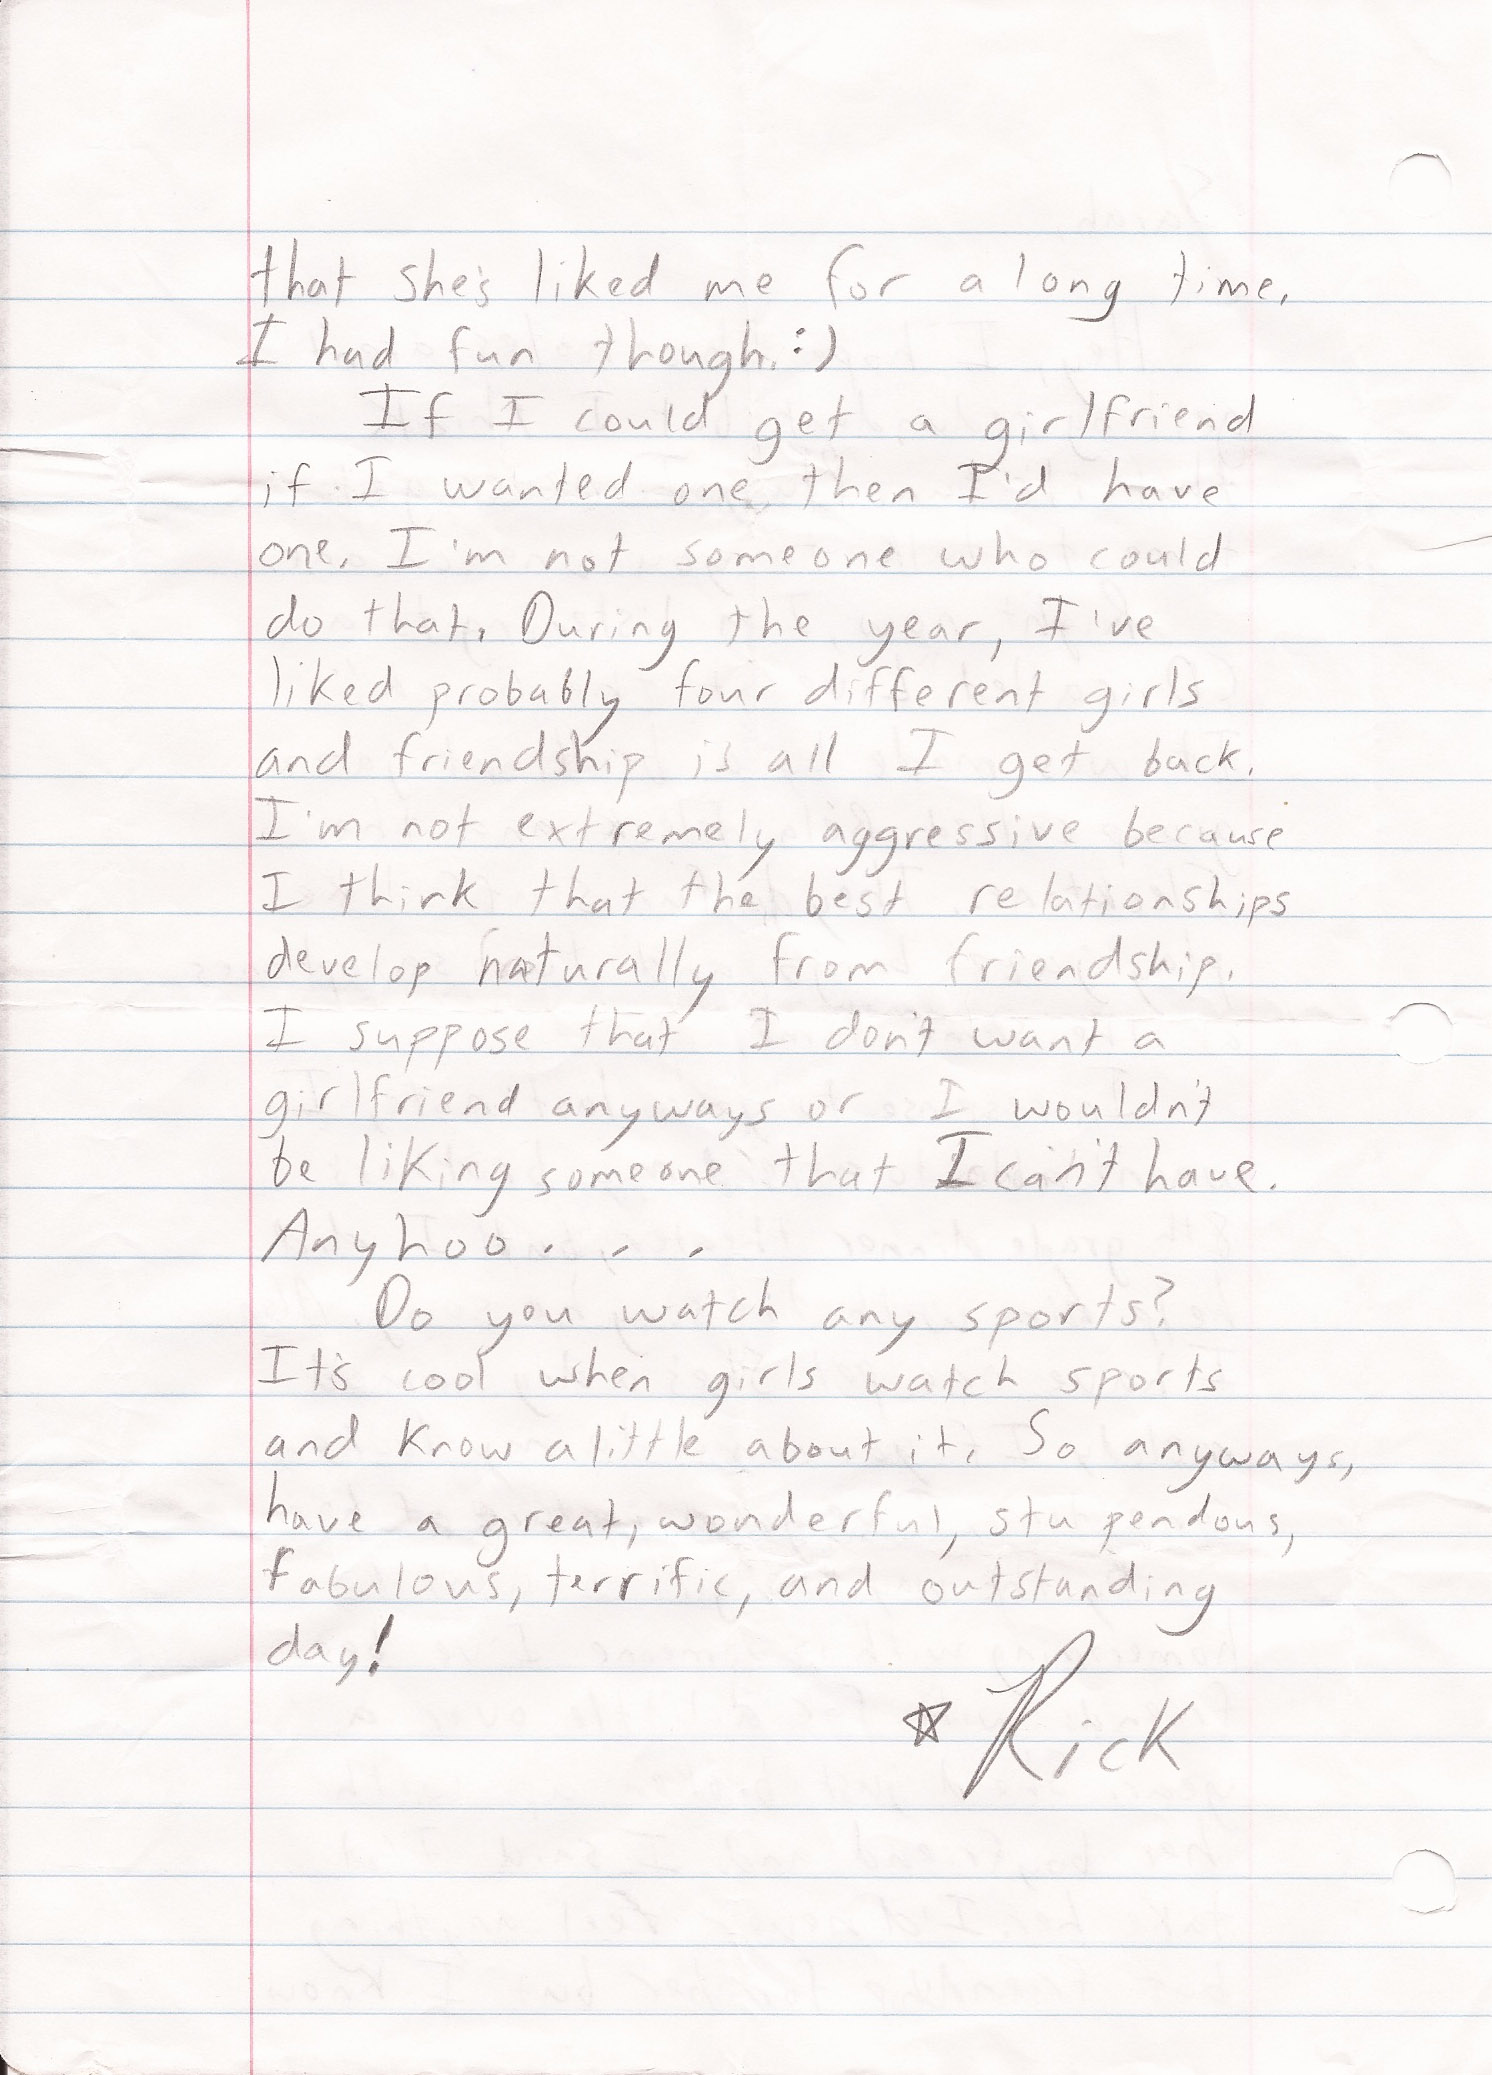 that she's liked me for a long time.
I had fun though. :)
If I could get a girlfriend
if I wanted one, then I'd have
one. I'm not someone who could
do that. During the year, I've
liked probably four different girls
and friendship is all I get back.
I'm not extremely aggressive because
I think that the best relationships
develop naturally from friendship.
I suppose that I don't want a
girlfriend anyways or I wouldn't
be liking someone that I can't have.
Anyhoo . . .
Do you watch any sports?
It's cool when girls watch sports
and know a little about it. So anyways,
have a great, wonderful, stupendous,
fabulous, terrific, and outstanding
day!
☆ Rick